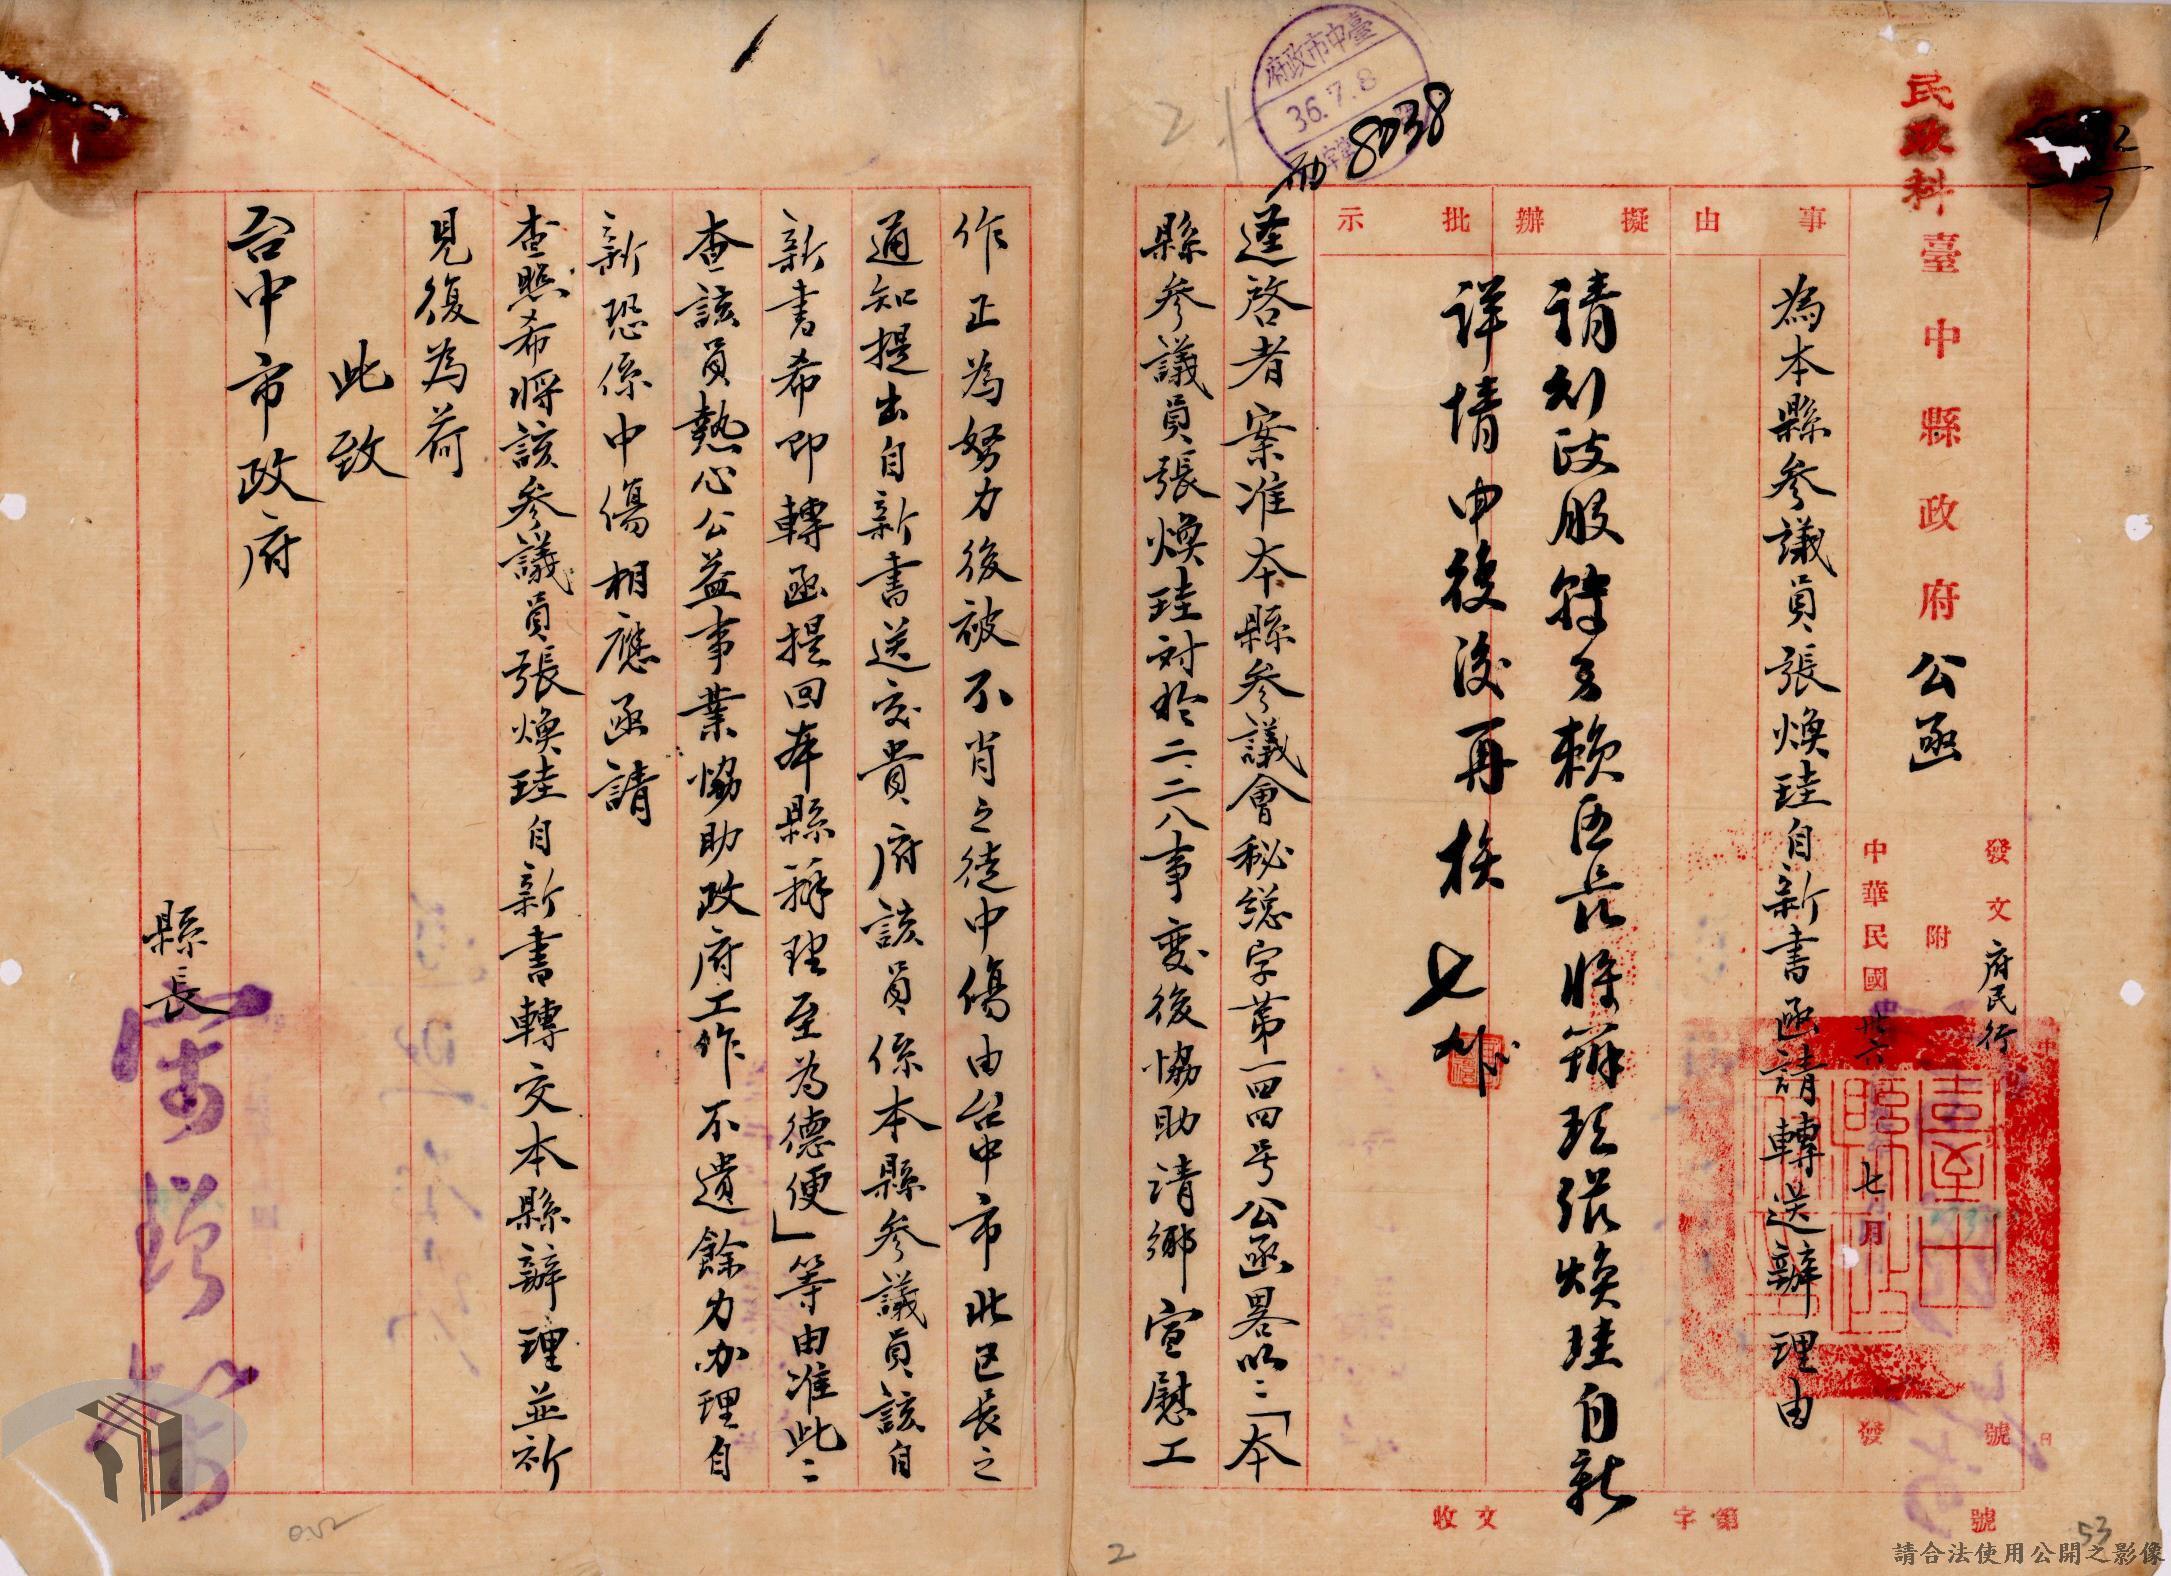 民政科
臺中縣政府公函
發文 府民行 號
附
中華民國卅六年七月 日發
事由
為本縣參議員張煥珪自新書函請轉送辦理由
擬辦
批示
請刘股長特多賴區長將辦理張煥珪自新
詳情申復後再核
七
謹啓者案准本縣參議會秘総字第一四四号公函畧以：「本
縣參議員張煥珪対於二、二八事變後協助清鄉宣慰工
收文 字第 號
臺中市政府
36.7.8
8038
作正為努力後被不肖之徒中傷由台中市北区長之
通知提出自新書送交貴府該員係本縣參議員該自
新書希即轉函提回本縣辦理至為德便」等由准此：
查該員熱心公益事業協助政府工作不遺餘力办理自
新恐係中傷相應函請
查照希將該參議員張煥珪自新書轉交本縣辦理並祈
見復為荷
此致
台中市政府
縣長
2
53
請合法使用公開之影像